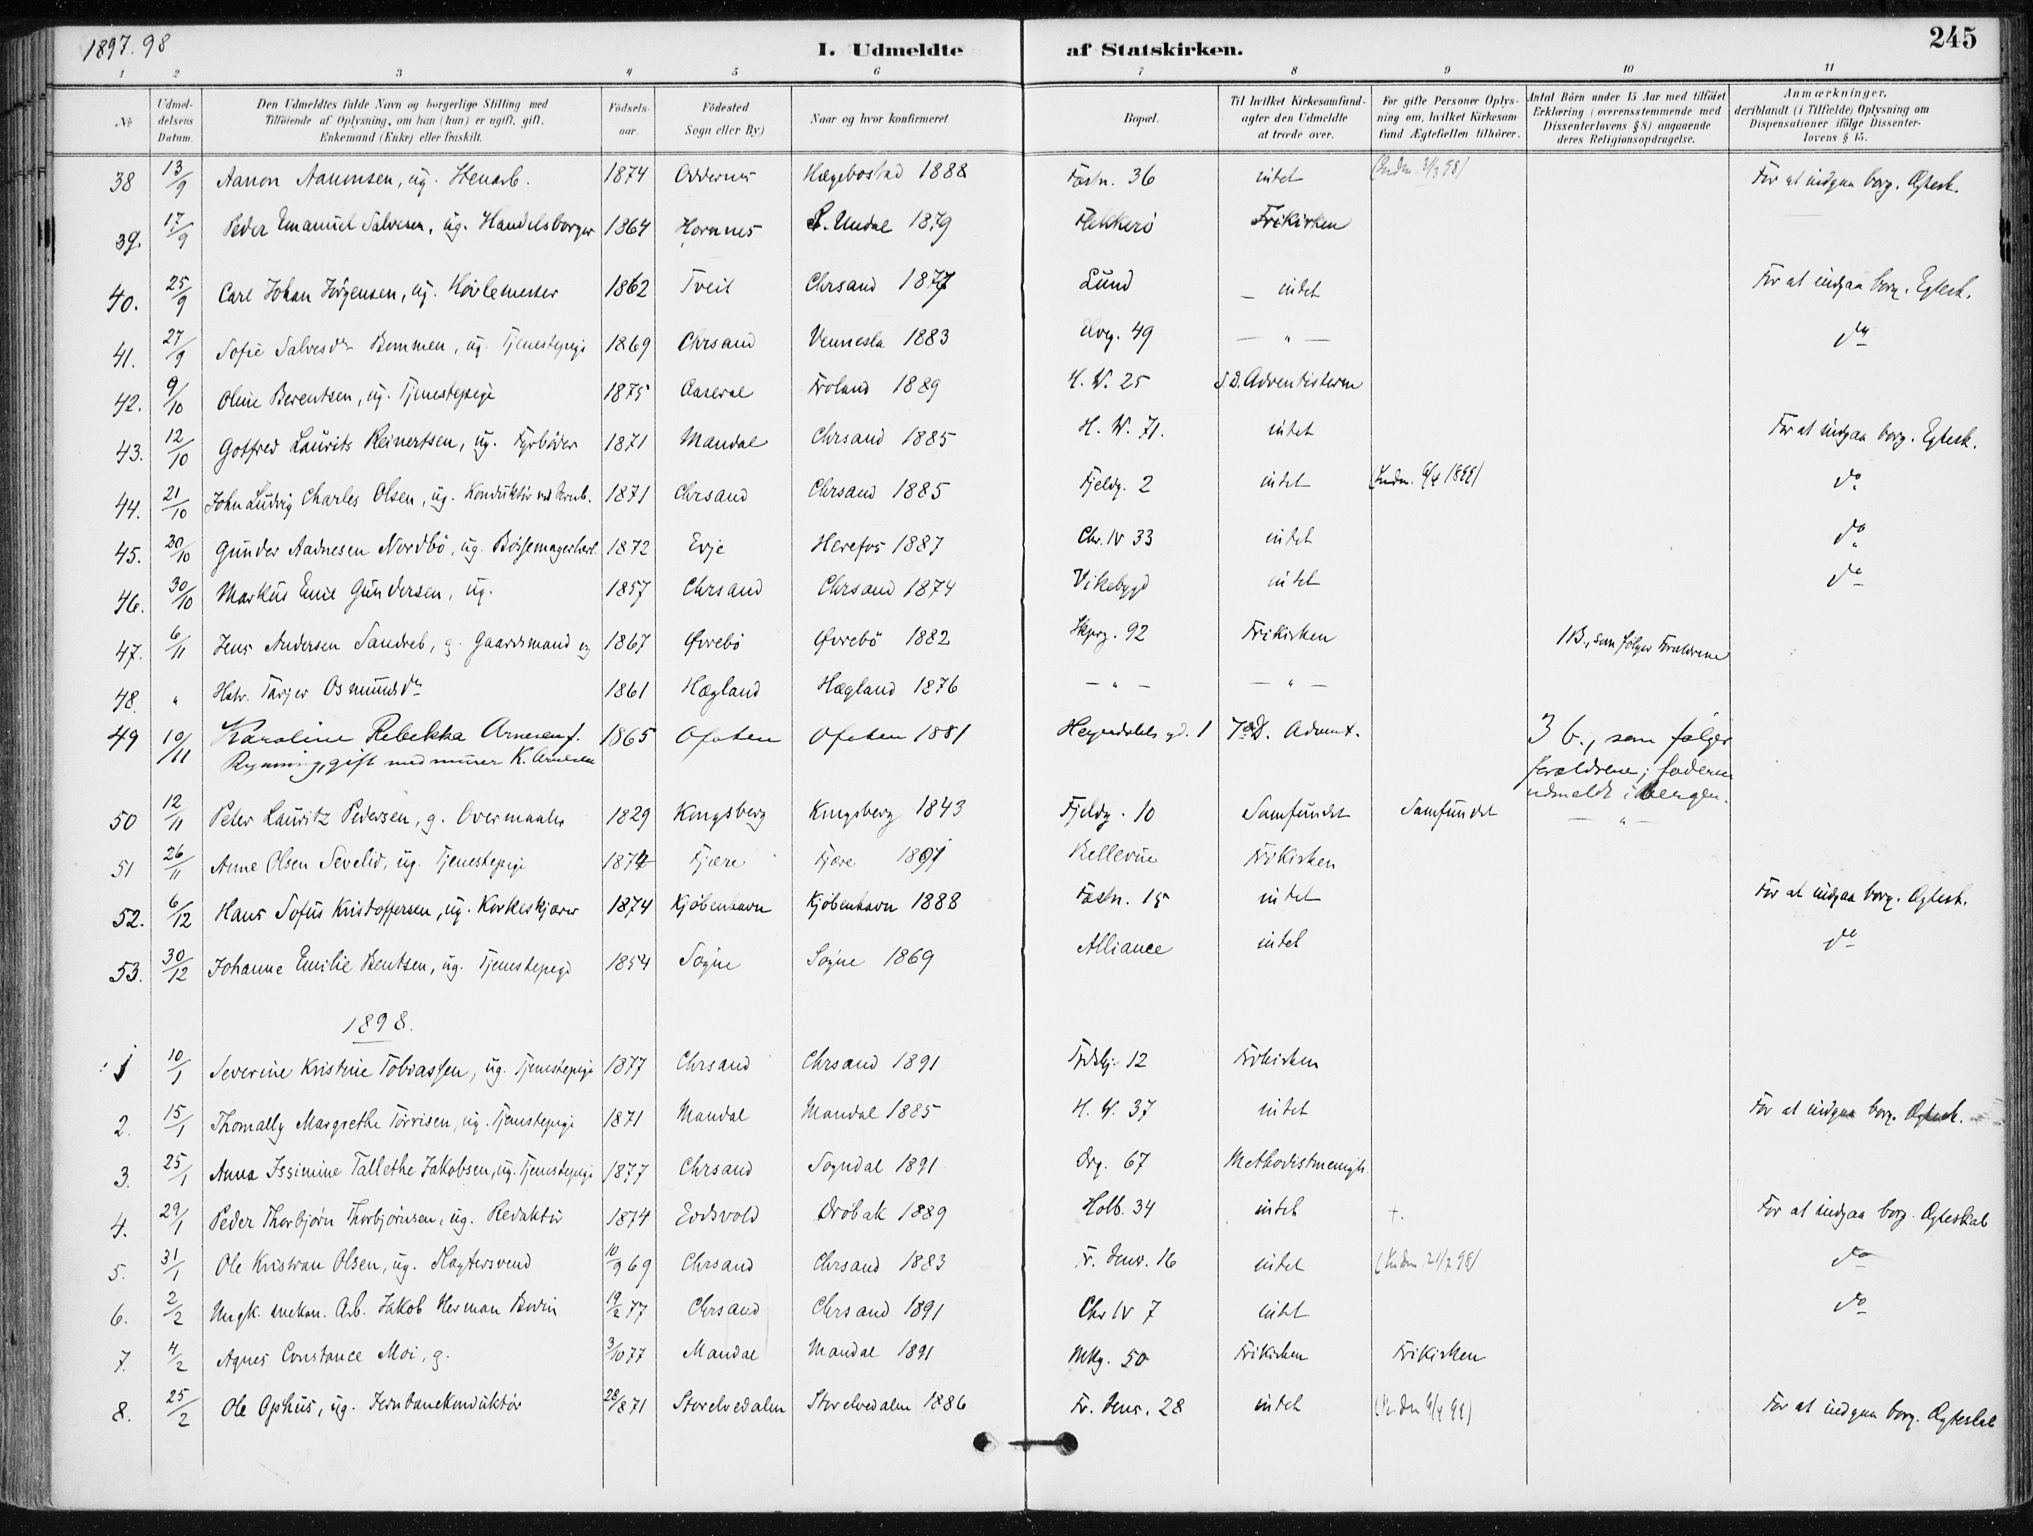 1897.98
I. Udmeldte af Statskirken.
245
1 2 3 4 5 6 7 8 9 10 11
No
Udmeldelsens Datum.
Den Udmeldtes fulde Navn og borgerlige Stilling med Tilføiende af Oplysning, om han (hun) er ugift, gift, Enkemand (Enke) eller fraskilt.
Fødselsaar.
Fødested Sogn eller By)
Naar og hvor konfirmeret
Bopæl.
Til hvilket Kirkesamfund agter den Udmeldte at træde over.
For gifte Personer Oplysning om, hvilket Kirkesamfund Ægtefællen tilhører.
Antal Børn under 15 Aar med tilføiet Erklæring (overensstemmende med Dissenterlovens § 8) angaaende deres Religionsopdragelse.
Anmærkninger, deriblandt (i Tilfælde) Oplysning om Dispensationer ifølge Dissenterlovens § 15.
38 13/9 Aanon Aanonsen, ug. Stenarb. 1874 Oddernes Hægebostad 1888 Fæstn. 36 intet (Indm. 3/3 98) For at indgaa borg. Ægtesk.
39. 17/9 Peder Emanuel Salvesen, ug. Handelsborger 1864 Hornnes S. Undal 1879 Flekkerö Frikirken
40. 25/9 Carl Johan Jörgensen, ug. Hövlemester 1862 Tveit Chrsand 1877 Lund intet For at indgaa borg. Egtesk.
41. 27/9 Sofie Salvesdr Bommen, ug. Tjenestepige 1869 Chrsand Vennesla 1883 Elvg. 49 — " — do
42. 9/10 Oline Berentsen, ug. Tjenestepige 1875 Aaseral Froland 1889 H. W. 25 S.D. Adventisterne
43. 12/10 Gotfred Laurits Reinertsen, ug. Fyrböder 1871 Mandal Chrsand 1885 H. W. 71. intet For at indgaa borg. Egtesk.
44. 21/10 John Ludvig Charles Olsen, ug. Konduktör ved Jernb. 1871 Chrsand Chrsand 1885 Fjeldg. 2 intet (Indm. 6/4 1899) do
45. 30/10 Gunder Aadnesen Nordbö, ug. Bössemagerlærl. 1872 Evje Herefos 1887 Chr. IV 33 intet do
46. 30/10 Markus Emil Gundersen, ug. 1857 Chrsand Chrsand 1874 Vikebygd intet do
47. 6/11 Jens Andersen Sandreb, g. Gaardmand og 1867 Øvrebö Øvrebö 1882 Skprg. 92 Frikirken 1 B., som følger Forældrene
48. " Hstr. Tarjer Osmundsdr 1861 Hægland Hægland 1876 — " — — " —
49 10/11 Karoline Rebekka Arnesen f. 1865 Ofoten Ofoten 1881 Heyerdahls gd. 1 7de D. Advent. 3 b., som følger
Rynning, gift med murer K. Arnesen forældrene; faderen
udmeldt i Bergen.
50 12/11 Peter Lauritz Pedersen, g. Overmaaler 1829 Kongsberg Kongsberg 1843 Fjeldg. 10 Samfundet Samfundet — " —
51 26/11 Anne Olsen Sevelid, ug. Tjenestepige 1874 Fjære Fjære 1891 Bellevue Frikirken
52. 6/12 Hans Sofus Kristoffersen, ug. Korkeskjærer 1874 Kjöbenhavn Kjöbenhavn 1888 Fæstn. 15 intet For at indgaa borg. Ægtesk.
53. 30/12 Johanne Emilie Bentsen, ug. Tjenestepige 1854 Søgne Søgne 1869 Alliance intet do
1898.
1 10/1 Severine Kristine Tobiassen, ug. Tjenestepige 1877 Chrsand Chrsand 1891 12 Frikirken
2. 15/1 Thomally Margrethe Torrisen, ug. Tjenestepige 1871 Mandal Mandal 1885 H. W. 37 intet For at indgaa borg. Ægtesk.
3. 25/1 Anna Issimine Tallethe Jakobsen, ug. Tjenestepige 1877 Chrsand Sogndal 1891 Drg. 67 Methodistmenigh.
4. 29/1 Peder Thorbjörn Thorbjörnsen, ug. Redaktör 1874 Eidsvold Dröbak 1889 Holb. 34 intet +. For at indgaa borg. Ægteskab
5. 31/1 Ole Kristian Olsen, ug. Slagtersvend 10/9 69 Chrsand Chrsand 1883 Fr. Henr. 16 intet (Indm. 21/7 98) do
6. 2/2 Ungk. mekan. Arb. Jakob Herman Bodin 19/2 77 Chrsand Chrsand 1891 Chr IV 7 intet do
7. 4/2 Agnes Constance Moi, g. 3/10 77 Mandal Mandal 1891 Mkg. 50 Frikirken Frikirken
8. 25/2 Ole Ophus, ug. Jernbanekonduktör 28/8 71 Storelvedalen Storelvedalen 1886 Fr. Henr. 28 intet (Indm 6/4 99) For at indgaa borg. Ægteskab